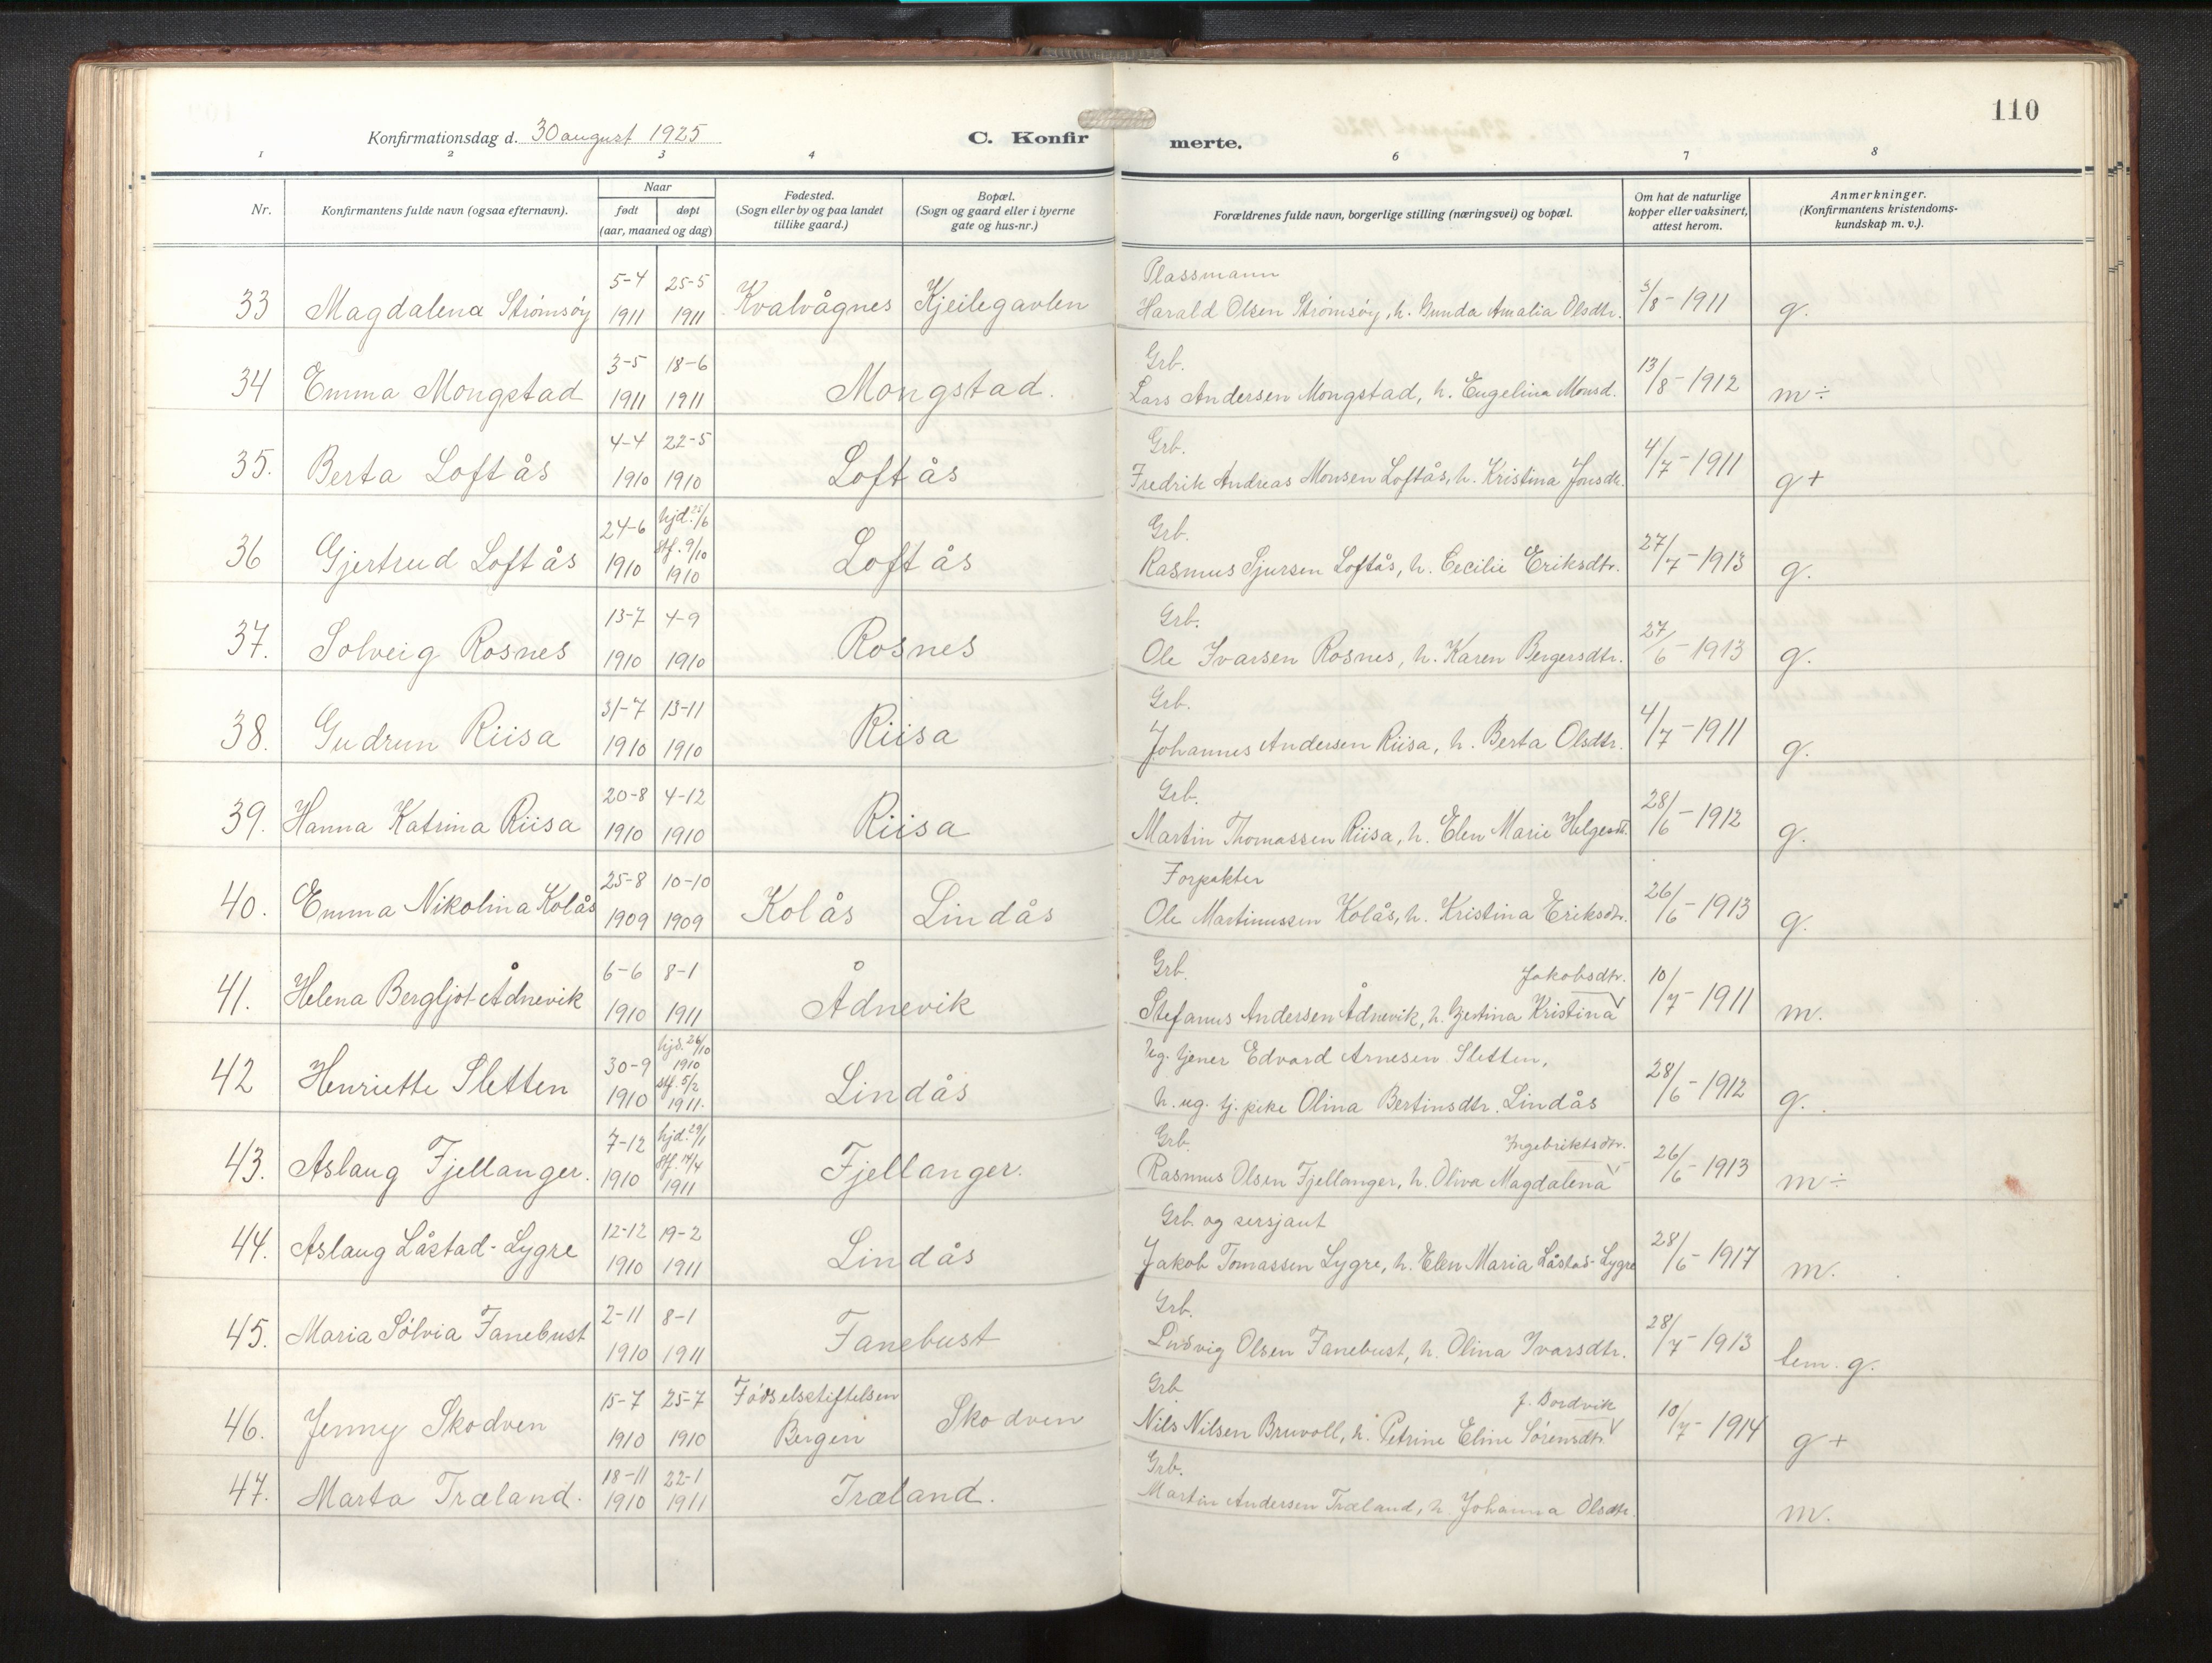 110
Konfirmationsdag d. 30 august 1925
C. Konfirmerte.
1 2 3 4 6 7 8
Nr.
Konfirmantens fulde navn (ogsaa efternavn).
Naar
født døpt
(aar, maaned og dag)
Fødested.
(Sogn eller by og paa landet
tillike gaard.)
Bopæl.
(Sogn og gaard eller i byerne
gate og hus-nr.)
Forældrenes fulde navn, borgerlige stilling (næringsvei) og bopæl.
Om hat de naturlige
kopper eller vaksinert,
attest herom.
Anmerkninger.
(Konfirmantens kristendoms-
kundskap m. v.).
5-4 25-5 Plassmann
33 Magdalena Strømsøy 1911 1911 Kvalvågnes Kjeilegavlen Harald Olsen Strømsøy, h. Gunda Amalia Olsdtr. 3/8-1911 g.
3-5 18-6 Grb.
34 Emma Mongstad 1911 1911 Mongstad. Lars Andersen Mongstad, h. Engelina Monsd. 13/8-1912 m÷
4-4 22-5 Grb.
35. Berta Loftås 1910 1910 Loftås Fredrik Andreas Monsen Loftås, h. Kristina Jonsdtr. 4/7-1911 g+
24-6 hjd. 25/6 stf. 9/10 Grb.
36 Gjertrud Loftås 1910 1910 Loftås Rasmus Sjursen Loftås, h. Cecilie Eriksdtr. 27/7-1913 g.
13-7 4-9 Grb.
37. Solveig Rosnes 1910 1910 Rosnes Ole Ivarsen Rosnes, h. Karen Bergersdtr. 27/6-1913 g.
31-7 13-11 Grb.
38. Gudrun Riisa 1910 1910 Riisa Johannes Andersen Riisa, h. Berta Olsdtr. 4/7-1911 g.
20-8 4-12 Grb.
39. Hanna Katrina Riisa 1910 1910 Riisa Martin Thomassen Riisa, h. Elen Marie Helgesdt. 28/6-1912 g.
25-8 10-10 Forpakter
40. Emma Nikolina Kolås 1909 1909 Kolås Lindås Ole Martinussen Kolås, h. Kristina Eriksdtr. 26/6-1913 g.
6-6 8-1 Grb. Jakobsdtr.
41. Helena Bergljot Ådnevik 1910 1911 Ådnevik Stefanus Andersen Ådnevik, h. Gjertina Kristina 10/7-1911 m.
30-9 hjd. 26/10 1910 Ug. tjener Edvard Arnesen Sletten,
42 Henriette Sletten 1910 stf. 5/2 1911. Lindås h. ug. tj. pike Olina Bertinsdtr. Lindås 28/6-1912 g.
7-12 hjd. 29/1 stf. 14/4 Grb. Ingebriktsdtr.
43. Aslaug Fjellanger. 1910 1911 Fjellanger. Rasmus Olsen Fjellanger, h. Oliva Magdalena 26/6-1913 m÷
12-12 19-2 Grb. og sersjant
44. Aslaug Låstad-Lygre 1910 1911 Lindås Jakob Tomassen Lygre, h. Elen Maria Låstad-Lygre 28/6-1917 m.
2-11 8-1 Grb.
45. Maria Sølvia Fanebust 1910 1911 Fanebust Ludvig Olsen Fanebust, h. Olina Ivarsdtr. 28/7-1913 tem. g.
15-7 25-7 Fødselsstiftelsen Grb. f. Bordvik
46. Jenny Skodven 1910 1910 Bergen Skodven Nils Nilsen Bruvoll, h. Petrine Eline Sørensdtr. 10/7-1914 g+
18-11 22-1 Grb.
47. Marta Træland. 1910 1911 Træland. Martin Andersen Træland, h Johanna Olsdtr. m.